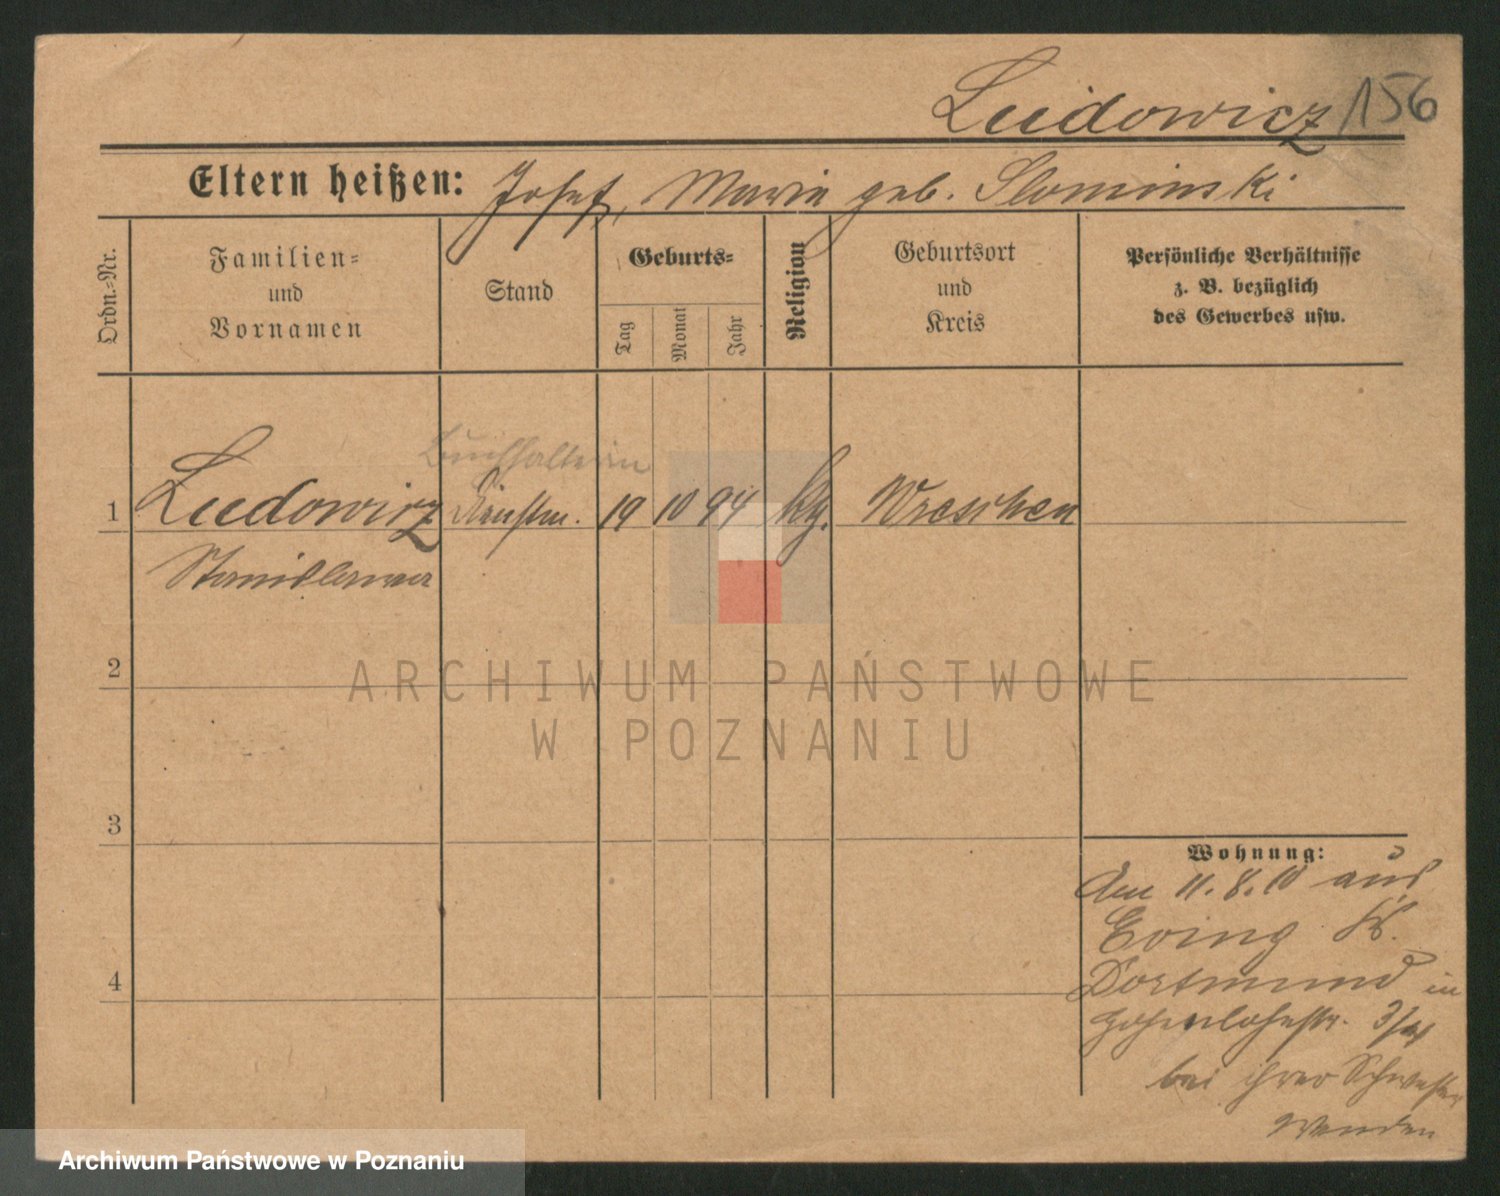 Ludowicz 156
Eltern heißen: Josef, Maria geb. Slominski
Ordn.-Nr.
Familien-
und
Vornamen
Stand
Geburts-
Tag
Monat
Jahr
Religion
Geburtsort
und
Kreis
Persönliche Verhältnisse
z. B. bezüglich
des Gewerbes usw.
Buchhalterin
1 Ludowicz Dienstm. 19 10 94 ktg. Wreschen
Stanislawa
2
3
4
Wohnung:
Am 11.8.10 aus
Eving K.
Dortmund in
Hohenlohestr.
bei ihrer Schwester
ARCHIWUM PAŃSTWOWE
W POZNANIU
Archiwum Państwowe w Poznaniu